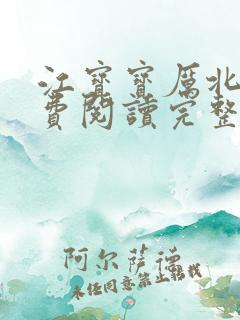 江寶寶厲北
費閱讀完整
阿尔萨德
未经同意禁止转载